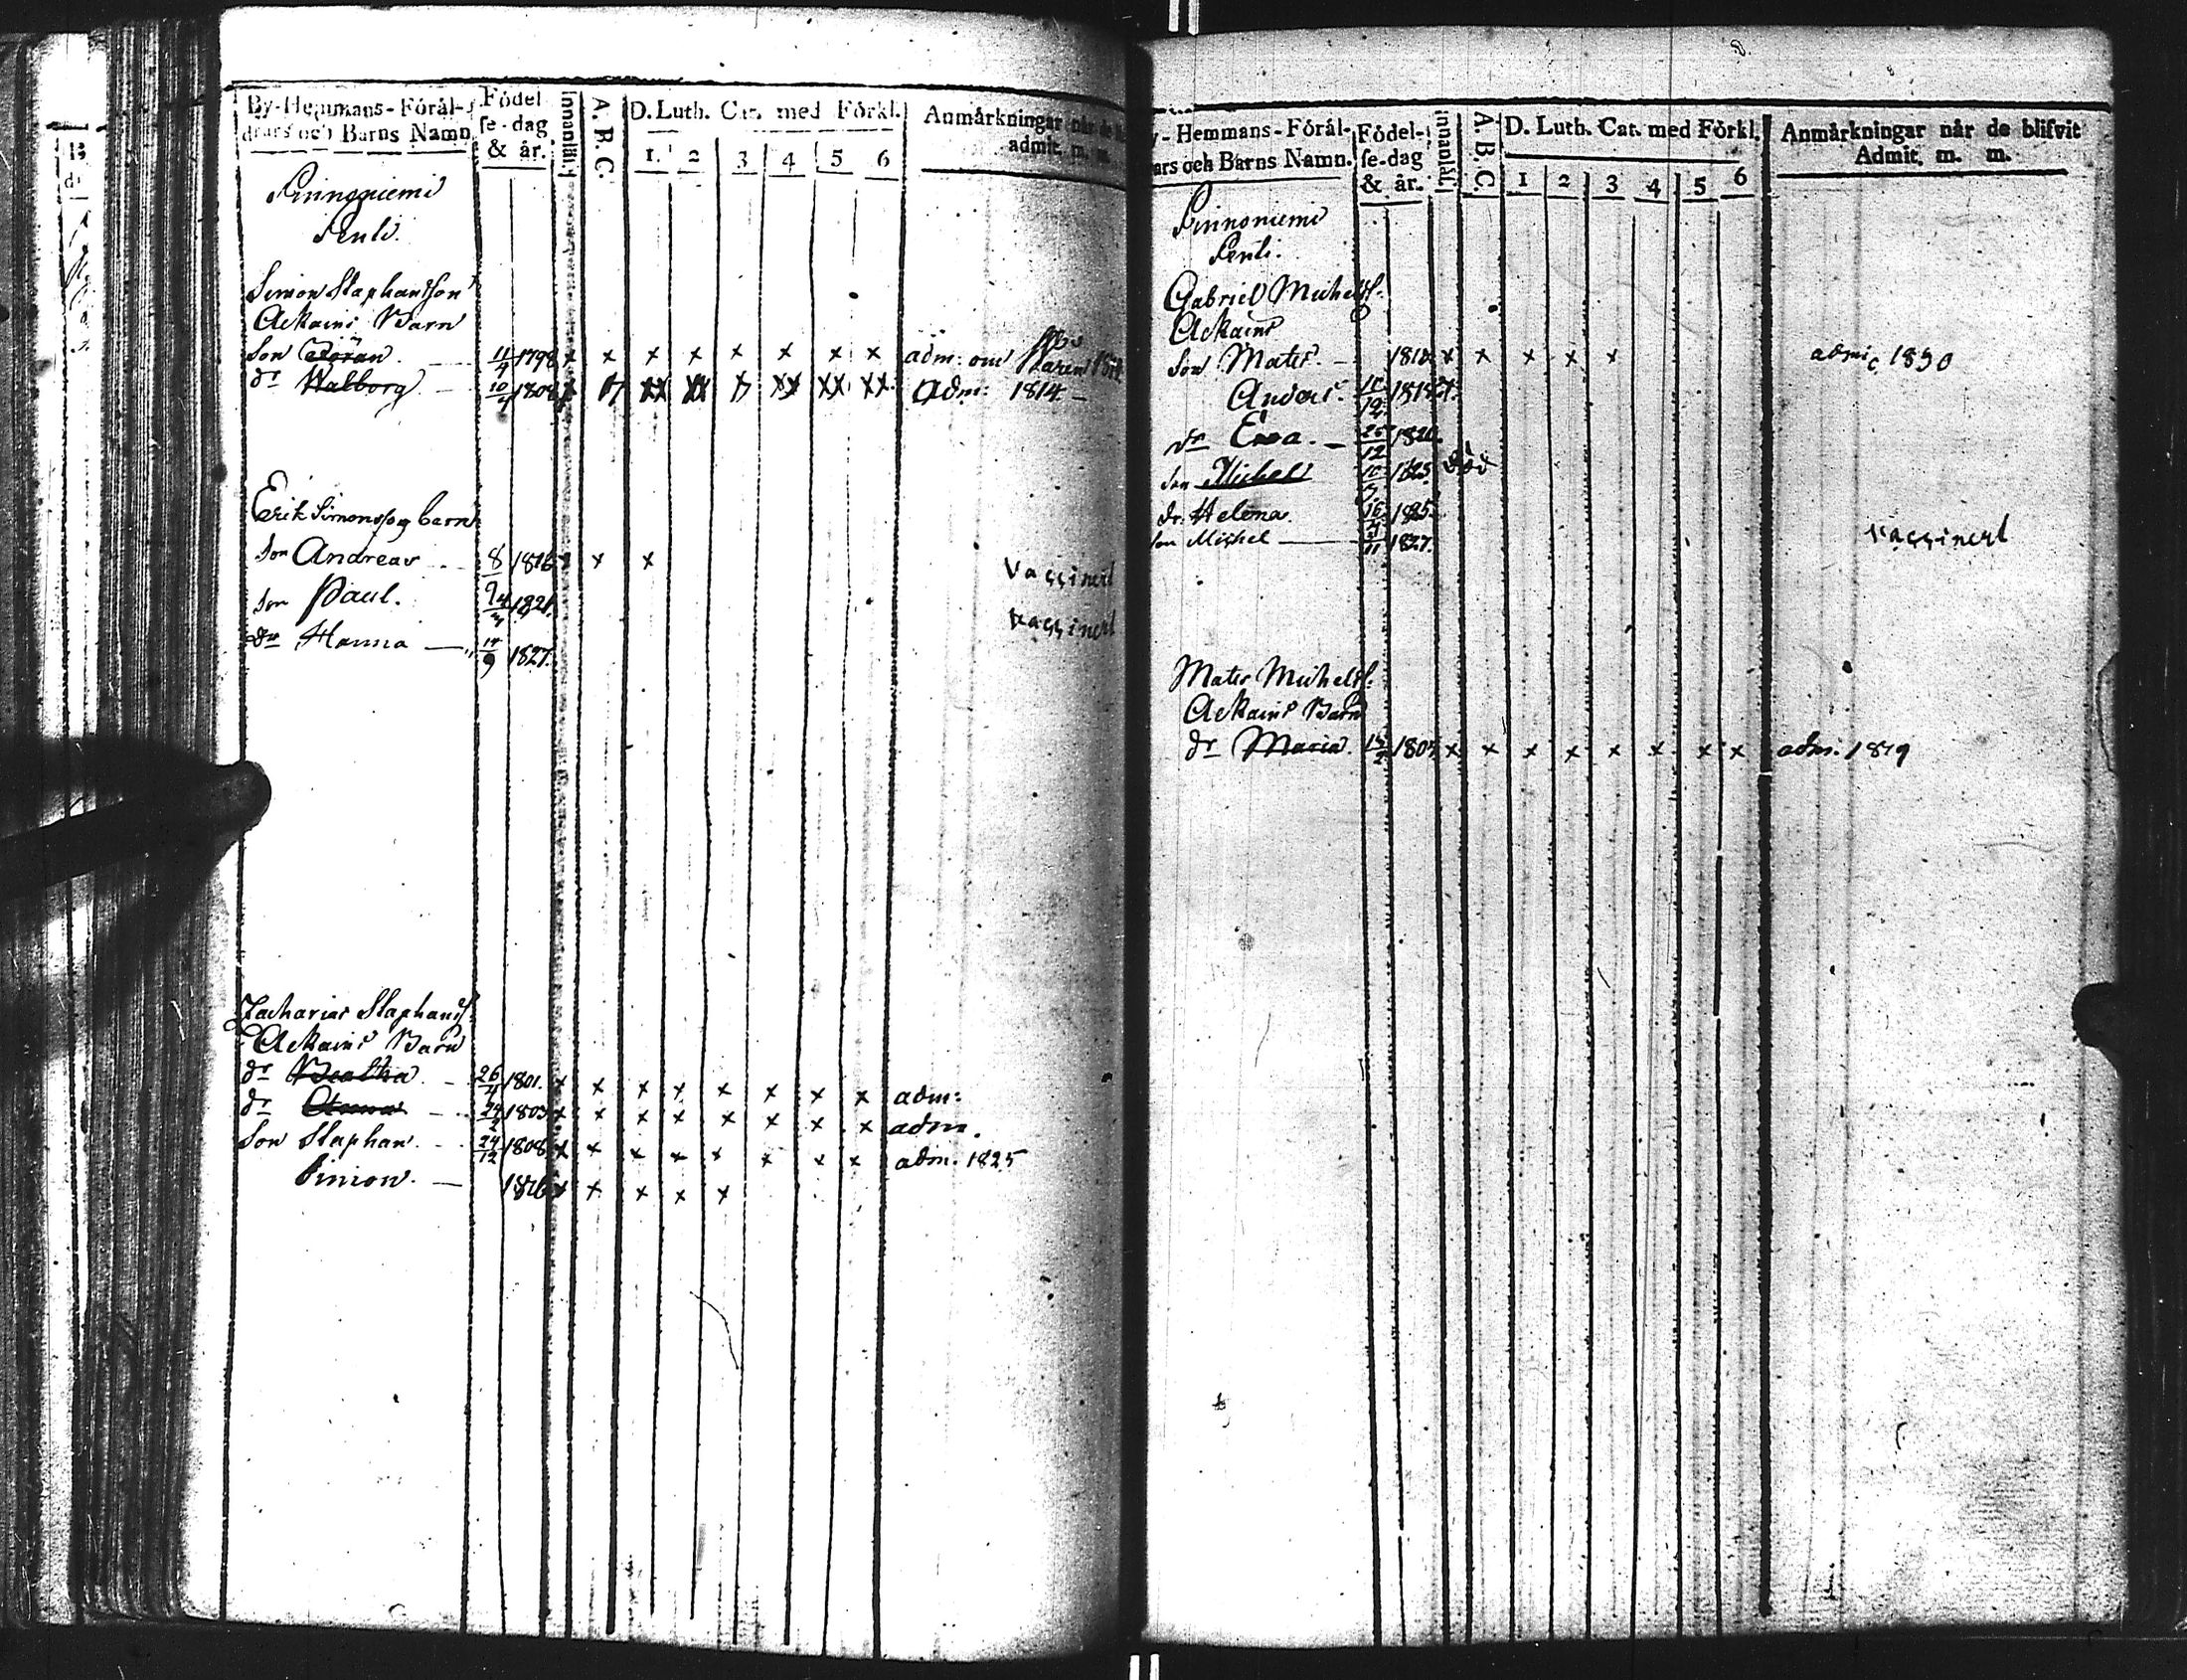 By-Hemmans-Föräl-
drars och Barns Namn.
Födel
se-dag
& år.
Innanläs.
A. B. C.
D. Luth. Cat. med Förkl.
1. 2 3 4 5 6
Anmärkningar når de
admit. m. m.
Pinnoniemi
Penti.
Simon Staphansson
Ackains Barn
Son Göran 11/4 1798 x x x x x x x x adm: om Waren
dr Walborg 10/4 180 Adm: 1814
Erik Simonsson barn
Son Andreas 8 1816 x x x Vaccinerd
son Paul. 1821. vaccinerd
dr Hanna 9 1827.
Zacharias Staphans
Ackains Barn
dr Beatha 26/4 1801. x x x x x x x x adm:
dr Anna 24/2 1803 x x x x x x x x adm.
Son Staphan 24/12 1808 x x x x x x x x adm. 1825
Simon. 1816 x x x x x
y-Hemmans-Förål-
ars och Barns Namn.
Födel-
se-dag
& år.
Innanläs.
A. B. C.
D. Luth. Cat. med Förkl.
1 2 3 4 5 6
Anmårkningar når de blifvit
Admit. m. m.
Pinnoniemi
Penti.
Gabriel Michelss.
Ackains
Son Mats 181 x x x x x admit. 1830
Anders 12 1818
dr Eva. 26/12 1820.
son Michel 10 1825 död
dr Helena 16 1825.
son Michel 11 1827. vaccinerd
Mats Michelss.
Ackains Barn
dr Maria 2 180 x x x x x x x x adm. 1819